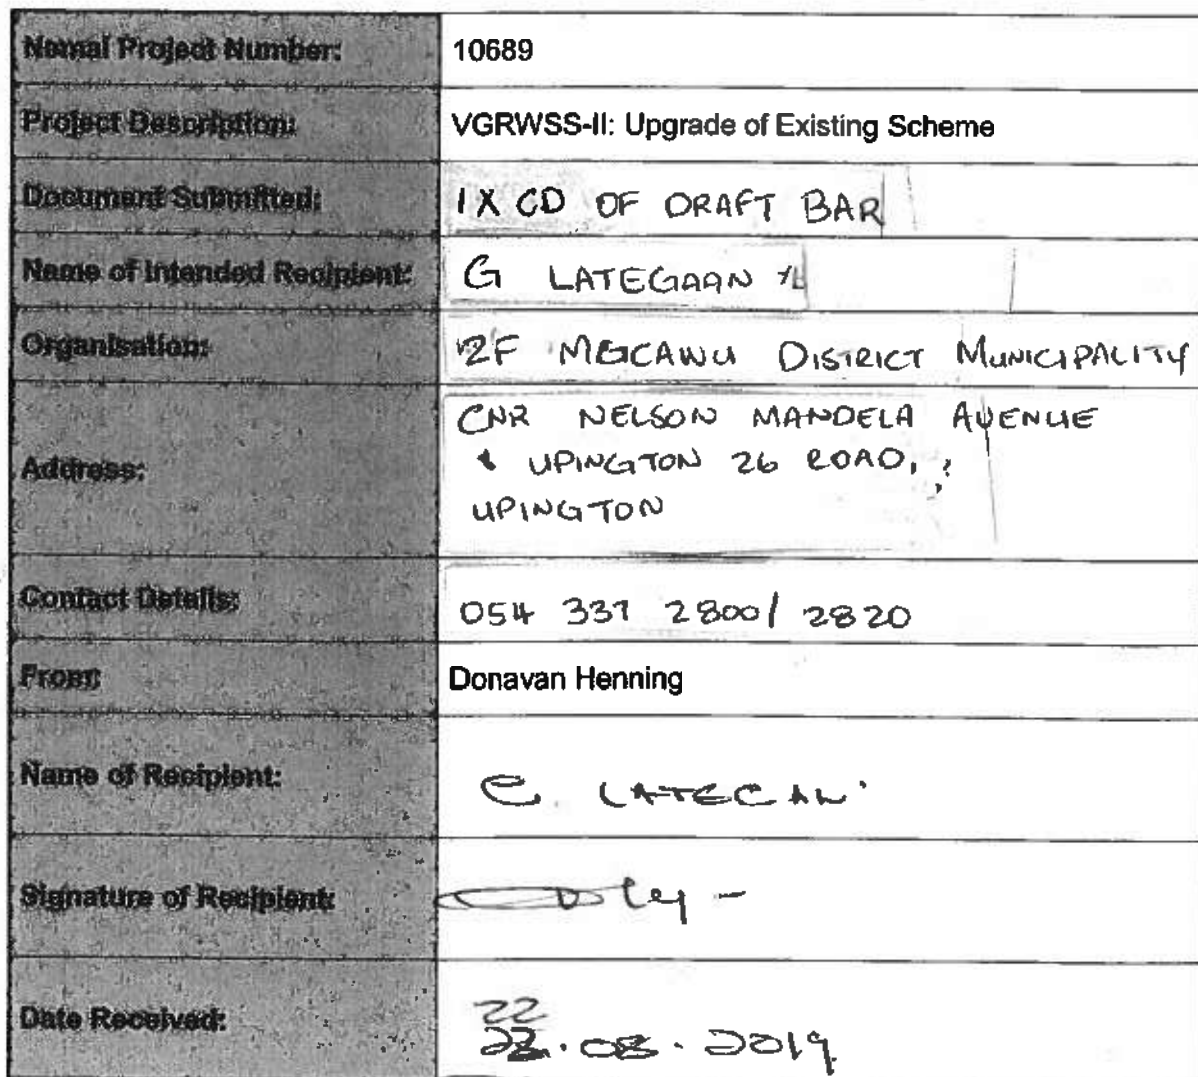 Nemai Project Number: 10689
Project Description: VGRWSS-II: Upgrade of Existing Scheme
Document Submitted: 1 X CD OF DRAFT BAR
Name of Intended Recipient: G LATEGAAN
Organisation: ZF MGCAWU DISTRICT MUNICIPALITY
Address: CNR NELSON MANDELA AVENUE
& UPINGTON 26 ROAD,
UPINGTON
Contact Details: 054 337 2800/ 2820
From: Donavan Henning
Name of Recipient: C. LATEGAN
Signature of Recipient:
Date Received: 22
.08.2019